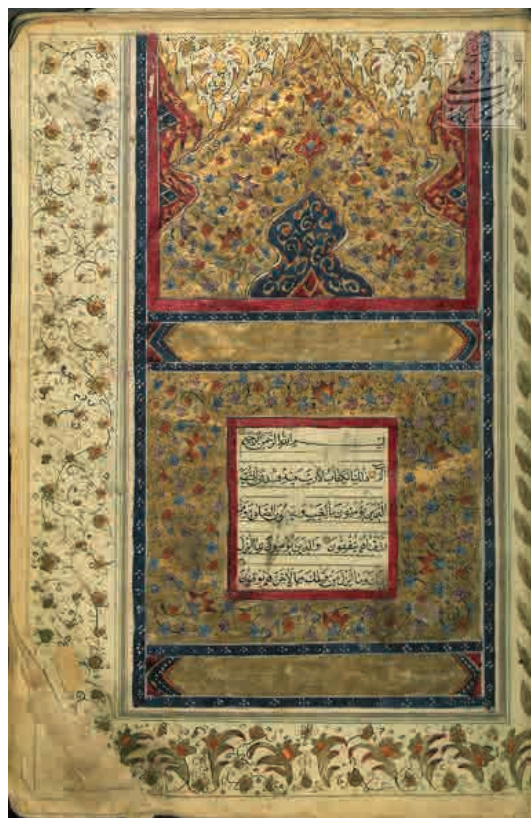 بسم الله الرحمن الرحيم
الم ذلك الكتاب لا ريب فيه هدى للمتقين
الذين يؤمنون بالغيب ويقيمون الصلوة ومما
رزقناهم ينفقون والذين يؤمنون بما انزل
اليك وما انزل من قبلك وبالاخرة هم يوقنون